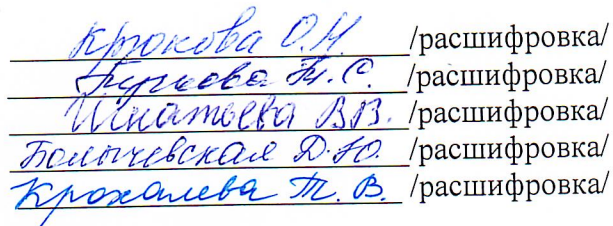 Крюкова О.Н. /расшифровка/
Т.С. /расшифровка/
Игнатьева В.В. /расшифровка/
Болычевская Д.Ю. /расшифровка/
Крохалева Т.В. /расшифровка/